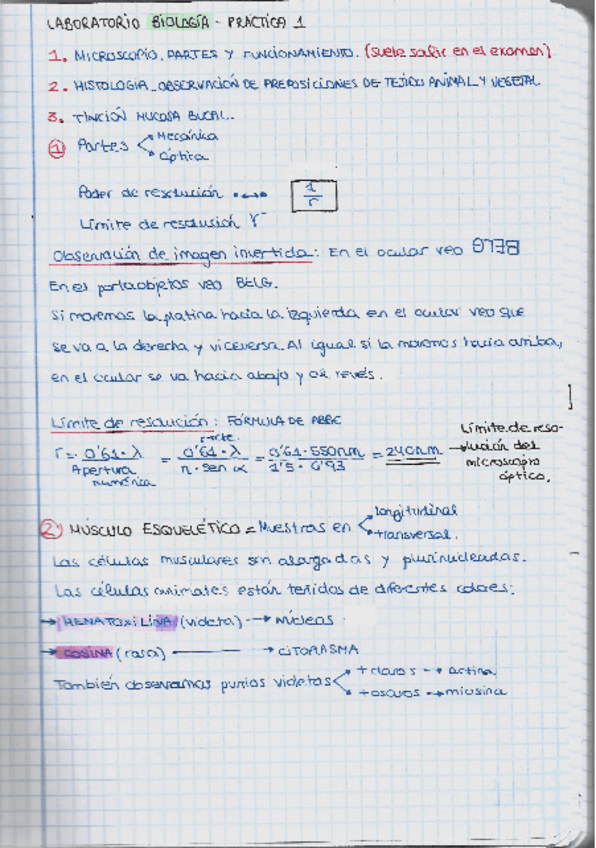 LABORATORIO BIOLOGÍA - PRÁCTICA 1
1. MICROSCOPIO, PARTES Y FUNCIONAMIENTO. (suele salir en el examen)
2. HISTOLOGIA. OBSERVACIÓN DE PREPOSICIONES DE TEJIDO ANIMAL Y VEGETAL
3. TINCIÓN MUCOSA BUCAL.
① Partes < Mecánica
Óptica
Poder de resolución 1/r
Límite de resolusión r
Observación de imagen invertida: En el ocular veo
En el portaobjetos veo BELG.
Si movemos la platina hacia la izquierda en el ocular veo que
se va a la derecha y viceversa. Al igual si la movemos hacia arriba,
en el ocular se va hacia abajo y al revés.
Límite de resolución: FÓRMULA DE ABBE
r = 0'61·λ / Apertura numérica = 0'61·λ / n·sen α = 0'61·550nm / 1'5·0'93 = 240nm → Límite de resolución del microscopio óptico.
② MÚSCULO ESQUELÉTICO = Muestras en < longitudinal
transversal.
Las células musculares son alargadas y plurinucleadas.
Las células animales están teñidas de diferentes colores:
→ HEMATOXILINA (violeta) → núcleos
→ EOSINA (rosa) → CITOPLASMA
También observamos puntos violetas < + claros → actina
+ oscuros → miosina